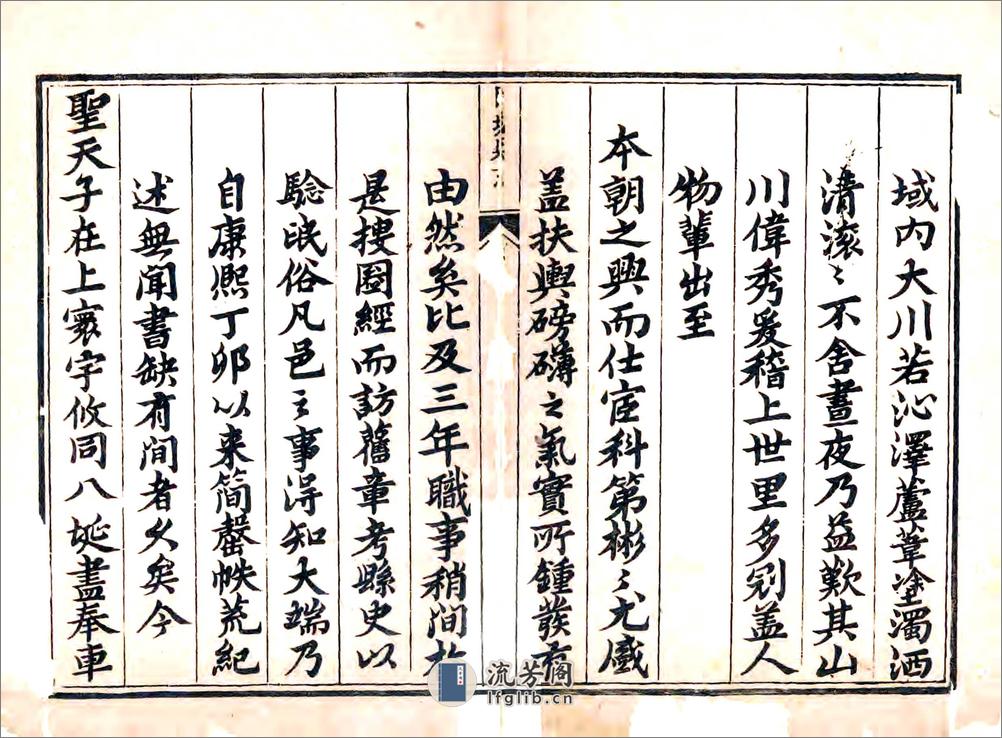 域内大川若沁澤蘆葦塗濁洒
清滾〻不舍晝夜乃益歎其山
川偉秀爰稽上世里多冠盖人
物輩出至
本朝之興而仕宦科第彬〻尤盛
盖扶輿磅礴之氣實所鍾發有
由然矣比及三年職事稍間於
是搜圖經而訪舊章考縣史以
驗民俗凡邑之事得知大端乃
自康熙丁卯以来簡罄帙荒紀
述無聞書缺有間者久矣今
聖天子在上寰宇攸同八埏盡奉車
流芳阁
lfglib.cn